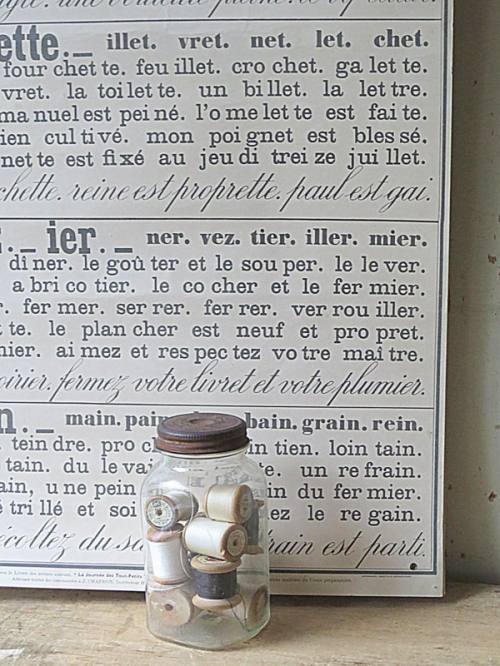 ette._ illet. vret. net. let. chet.
four chet te. feu illet. cro chet. ga let te.
vret. la toi let te. un bil let. la let tre.
ma nuel est pei né. l'o me let te est fai te.
ien cul ti vé. mon poi gnet est bles sé.
net te est fi xé au jeu di trei ze jui llet.
chette. reine est proprette. paul est gai.
._ ier._ ner. vez. tier. iller. mier.
di ner. le goû ter et le sou per. le le ver.
a bri co tier. le co cher et le fer mier.
r. fer mer. ser rer. fer rer. ver rou iller.
te. le plan cher est neuf et pro pret.
nier. ai mez et res pec tez vo tre maî tre.
oirier. fermez votre livret et votre plumier.
n._ main. pain bain. grain. rein.
tein dre. pro ch in tien. loin tain.
tain. du le vai te. un re frain.
ain, u ne pein in du fer mier.
é tri llé et soi ez le re gain.
écoltez du sa rain est parti.
" La Journée des Tout-Petits "